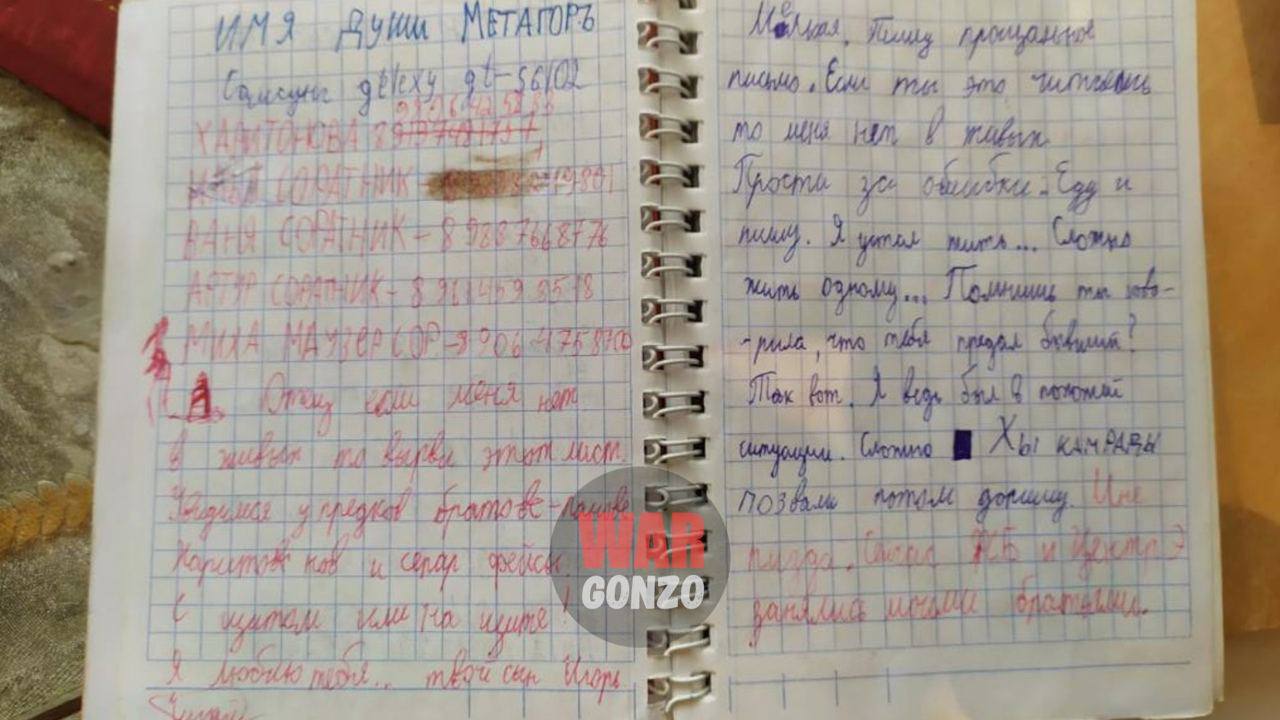 ИМЯ ДУШИ МЕТАГОРЪ
Самсунг gt-S6102
ХАРИТОНОВА
СОРАТНИК -
ВАНЯ СОРАТНИК - 8 988 7668776
АРТУР СОРАТНИК - 8 961 459
МИХА МАУЗЕР СОР -
Отец если меня нет
в живых то вырви этот лист.
Увидимся у предков братове-
Харитонов и
С щитом или на щите!
Я люблю тебя.. твой сын Игорь
Пишу прощальное
письмо. Если ты это читаешь
то меня нет в живых.
Прости за ошибки. Еду и
пишу. Я устал жить... Сложно
жить одному... Помнишь ты гово-
-рила, что тебя предал бывший?
Так вот. Я ведь был в похожей
ситуации. Сложно КАМРАДЫ
ПОЗВАЛИ потом допишу. Мне
пизда. и Центр Э
занялись моими братьями.
WAR
GONZO